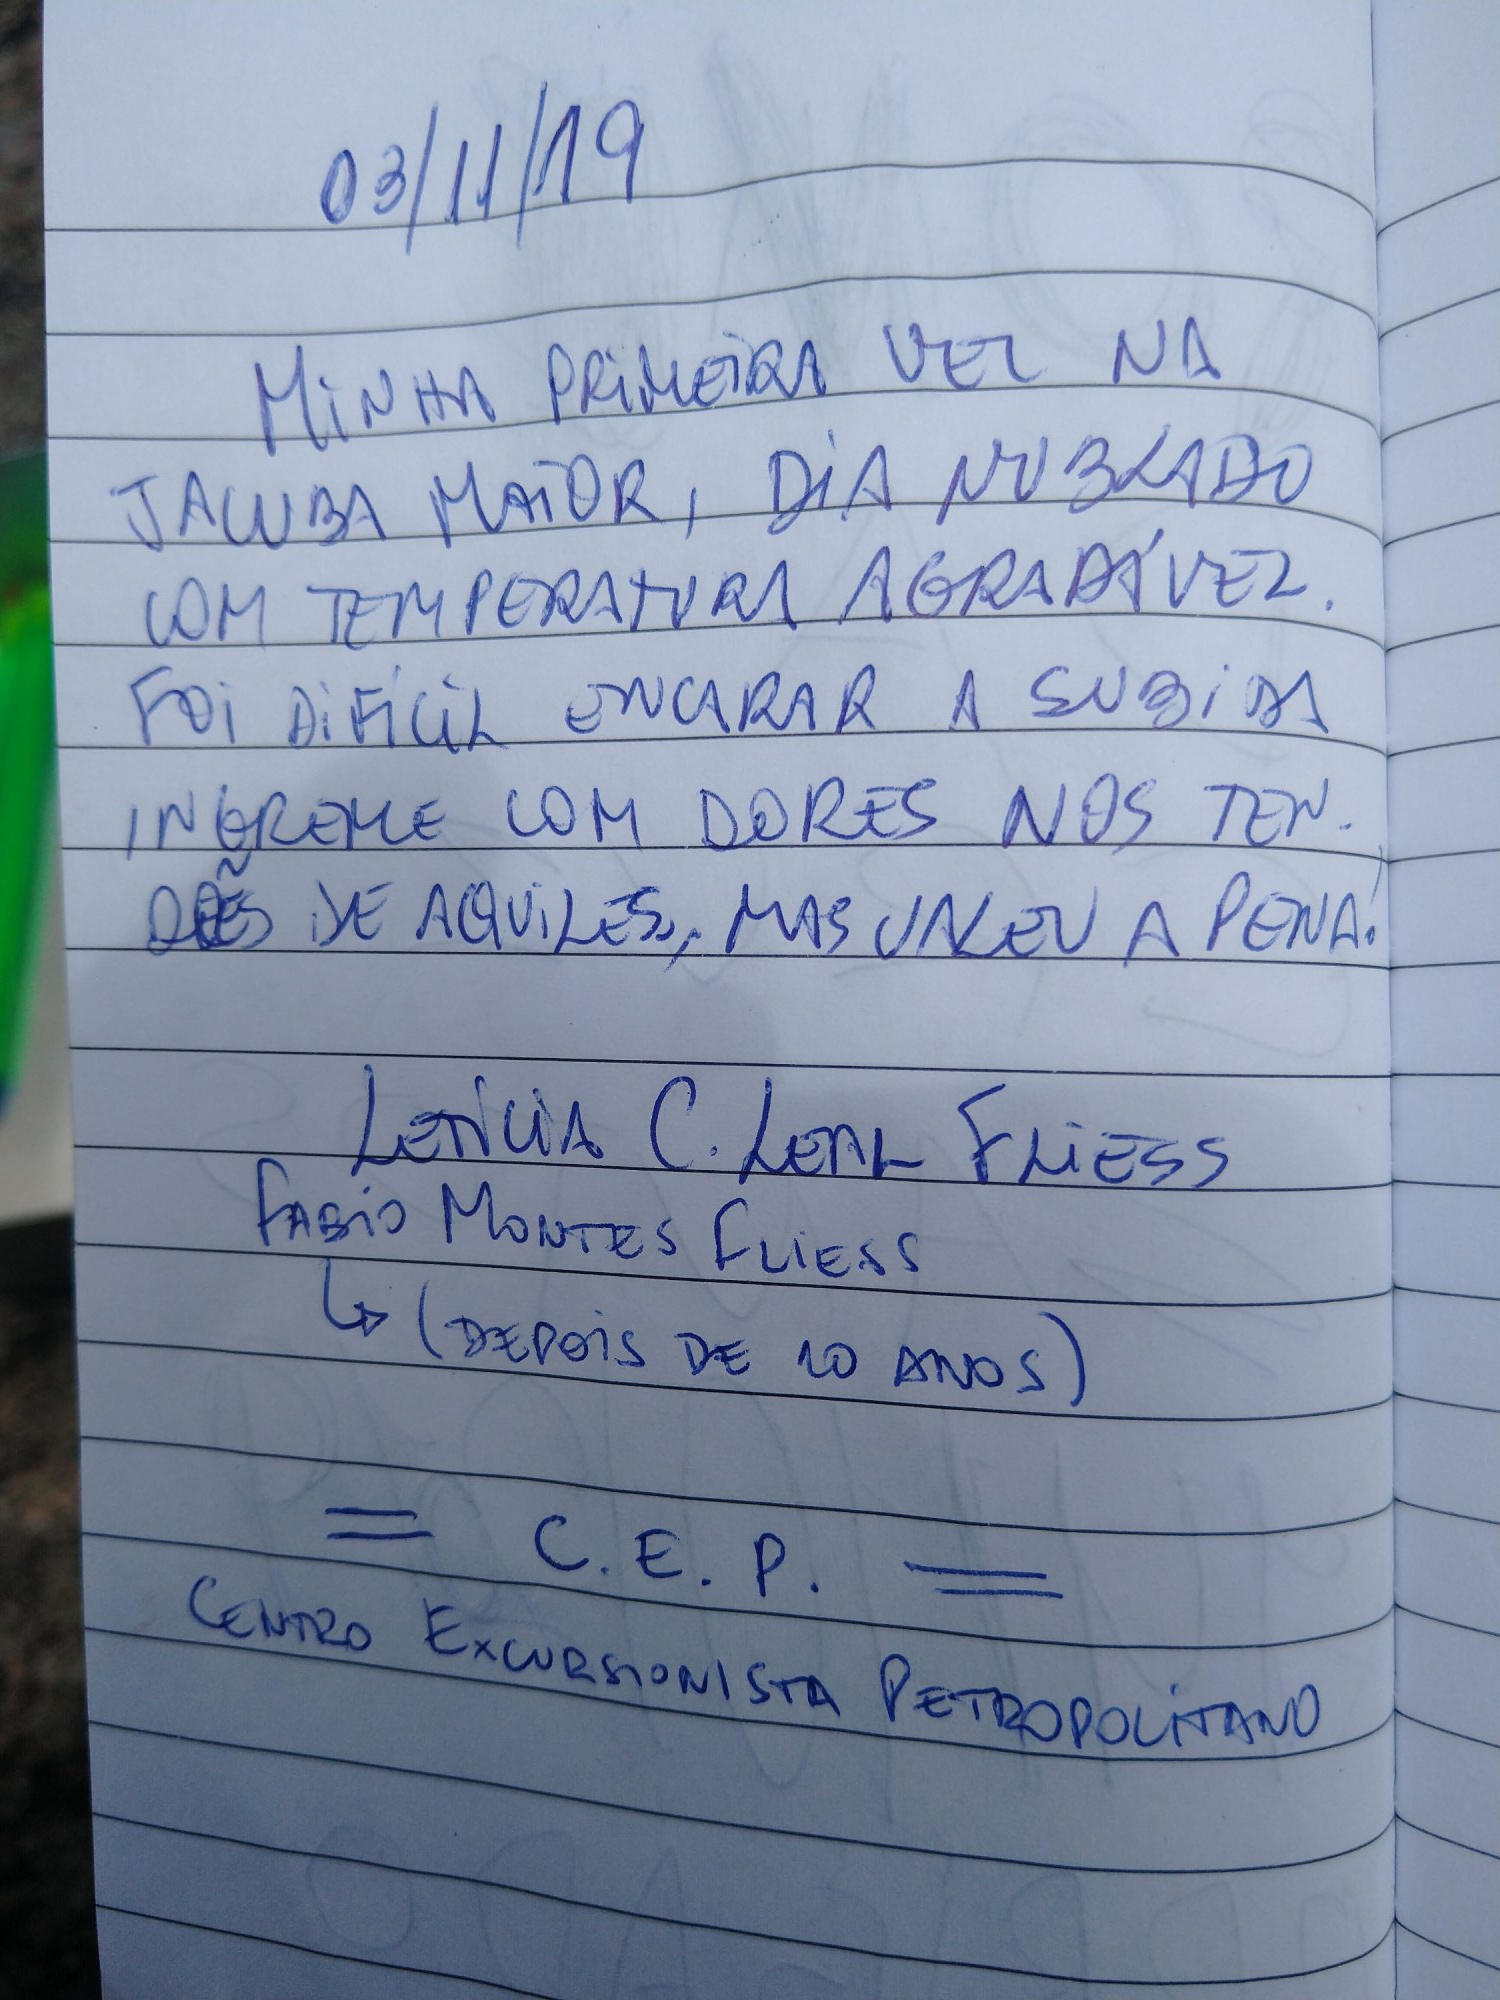 03/11/19
MINHA PRIMEIRA VEZ NA
JACUBA MAIOR, DIA NUBLADO
COM TEMPERATURA AGRADÁVEL.
FOI DIFÍCIL ENCARAR A SUBIDA
INGREME COM DORES NOS TEN-
DÕES DE AQUILES, MAS VALEU A PENA!
LETÍCIA C. LEAL FLIESS
FABIO MONTES FLIESS
↳ (DEPOIS DE 10 ANOS)
= C.E.P. =
CENTRO EXCURSIONISTA PETROPOLITANO